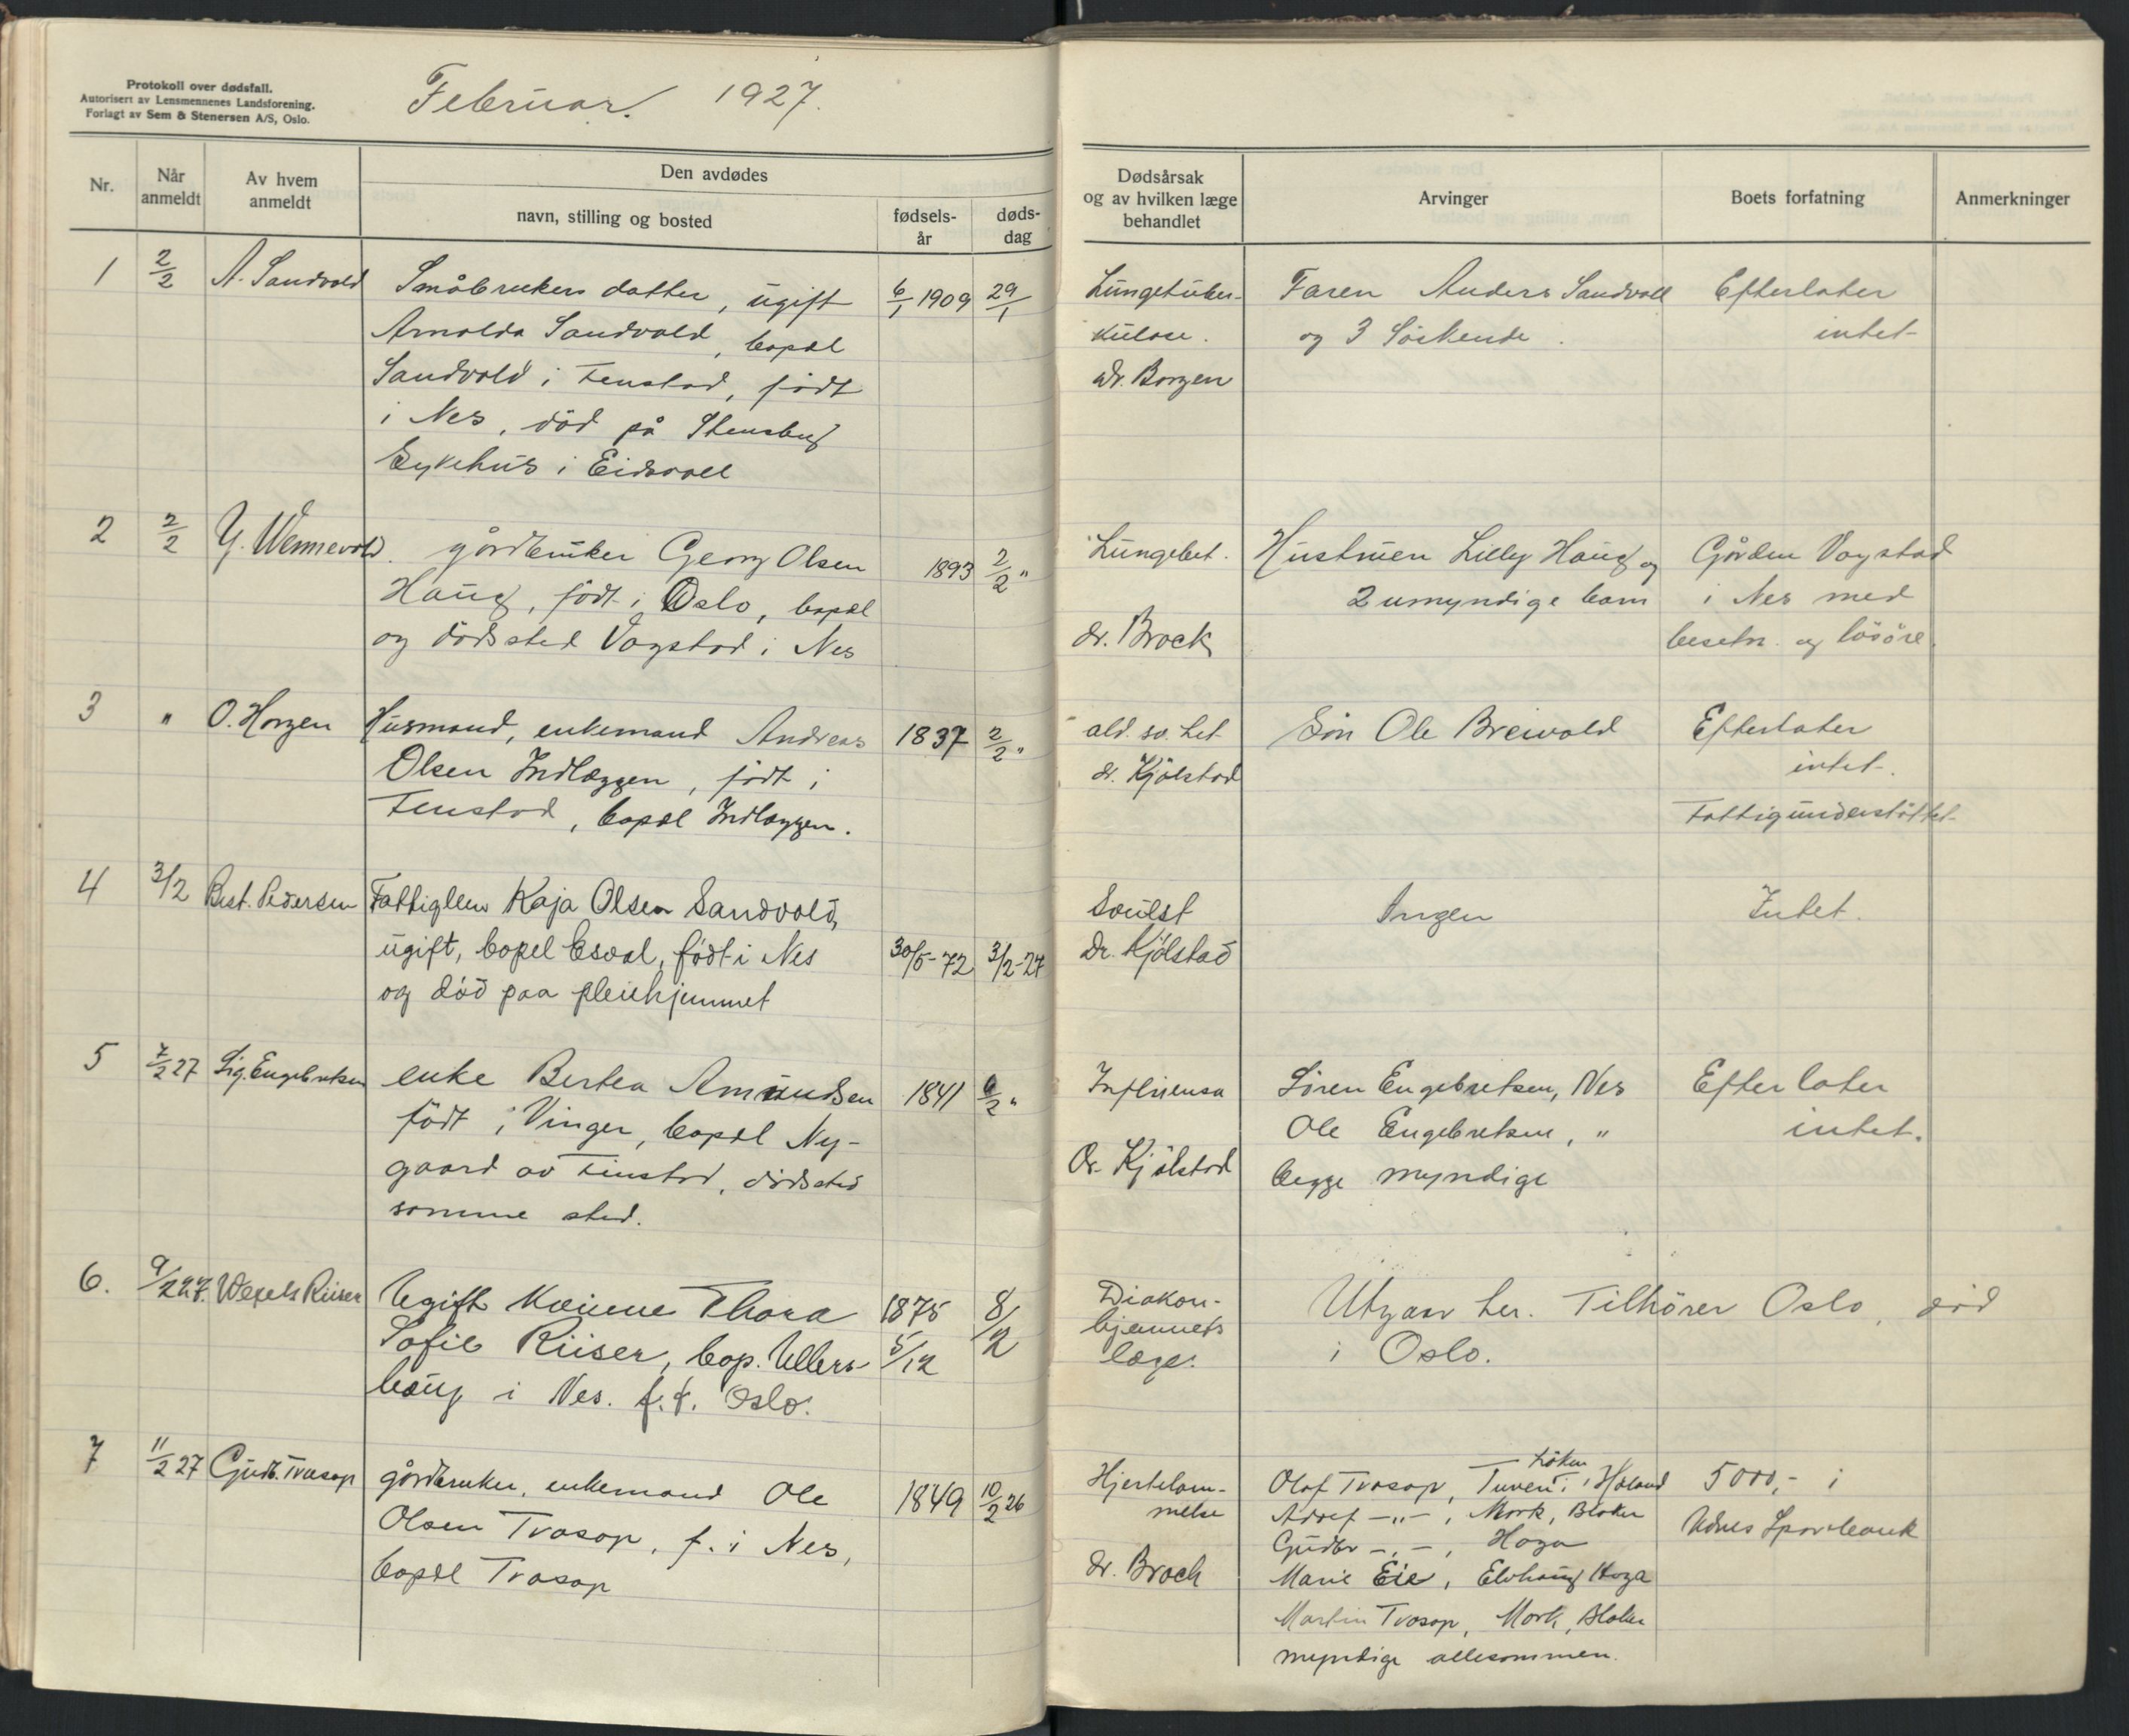 Protokoll over dødsfall.
Autorisert av Lensmennenes Landsforening.
Forlagt av Sem & Stenersen A/S, Oslo.
Februar. 1927.
Nr.
Når
anmeldt
Av hvem
anmeldt
Den avdødes
navn, stilling og bosted
fødsels-
år
døds-
dag
Dødsårsak
og av hvilken læge
behandlet
Arvinger
Boets forfatning
Anmerkninger
1 2/2 A. Sandvold Småbrukers datter, ugift 6/1 1909 29/1
Arnolda Sandvold, bopæl
Sandvold i Fenstad, født
i Nes, död på Stensby
Sykehus i Eidsvoll
Lungetuber-
kulose.
dr. Borgen
Faren Anders Sandvoll
og 3 Söskende.
Efterlater
intet
2 2/2 Y. Wennevold. gårdbruker Georg Olsen 1893 2/2 "
Haug, födt i Oslo, bopæl
og dödssted Vogstad i Nes
Lungebet.
dr. Brock
Hustruen Lilly Haug og
2 umyndige barn
Gården Vogstad
i Nes med
besetn. og lösöre.
3 " O. Horgen Husmand, enkemand Andreas 1837 2/2 "
Olsen Indlæggen, födt i
Fenstad, bopæl Indlæggen.
ald. sv. het
dr. Kjölstad
Sön Ole Breivold
Efterlater
intet.
Fattigunderstöttet
4 3/2 Best. Pedersen Fattiglem Kaja Olsen Sandvold,
ugift, bopel Esval, födt i Nes 30/5-72 3/2-27
og död paa pleiehjemmet
Svulst
Dr. Kjölstad
Ingen
Intet.
5 7/2 27 Sig. Engebretsen enke Bertea Amundsen 1841 6/2 "
födt i Vinger, bopæl Ny-
gaard av Finstad, dödssted
samme sted.
Influensa
Dr. Kjölstad
Sören Engebretsen, Nes
Ole Engebretsen, "
begge myndige
Efterlater
intet.
6. 9/2 27. Wexels Riiser Ugift Kvinne Thora 1875 8/2
Sofie Riiser, bop. Ullers- 5/12
haug i Nes. f. f. Oslo.
Diakon-
hjemmets
læge.
Utgaar her. Tilhörer Oslo, död
i Oslo.
7 11/2 27 Gudb. Tvasop gårdbruker, enkemand Ole 1849 10/2 26
Olsen Tvasop, f. i Nes,
bopæl Tvasop
Hjertelam-
melse
dr. Broch
Löken
Olaf Tvasop, Tuven i Höland
Adolf -"-, Mork, Blaker
Gudbr -"-, Haga
Marie Eie, Elvhaug Haga
Martin Tvasop, Mork, Blaker
myndige allesammen.
5000,- i
Udnes Sparebank